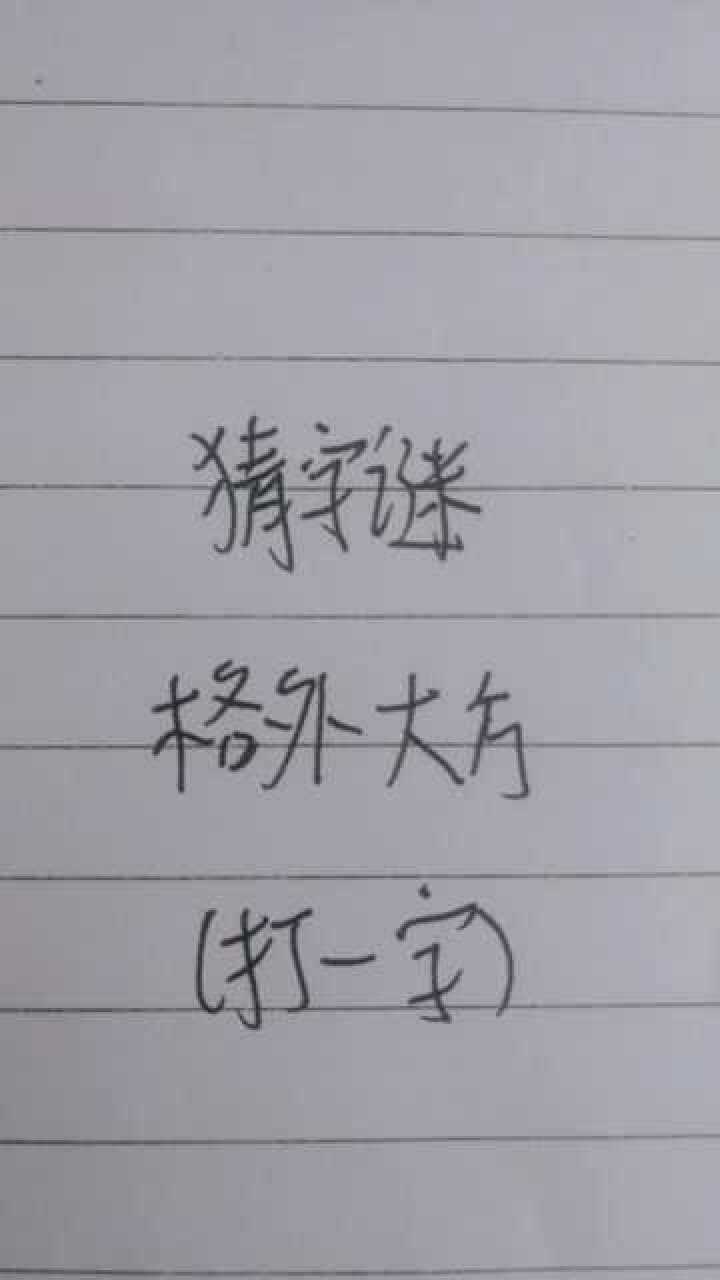 猜字谜
格外大方
(打一字)